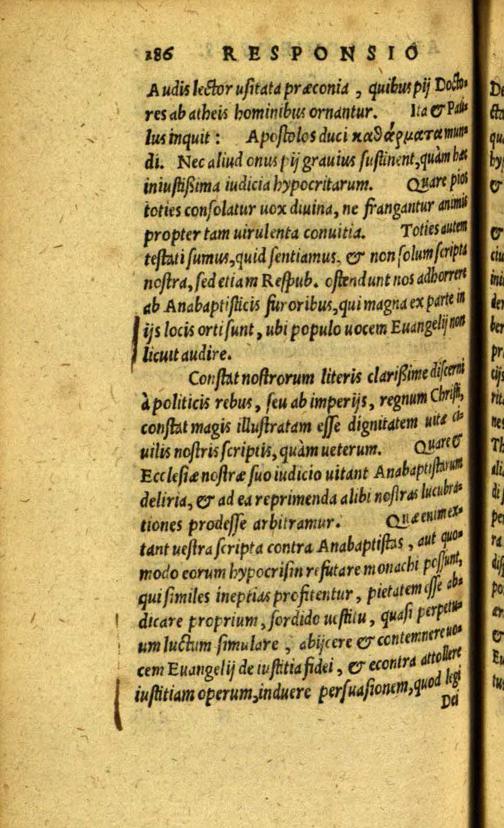 186 RESPONSIO
Audis lector usitata præconia, quibus pij Docto-
res ab atheis hominibus ornantur. Ita & Pau-
lus inquit: Apostolos duci καθάρματα mun-
di. Nec aliud onus pij grauius sustinent, quàm hæc
iniustißima iudicia hypocritarum. Quare pios
toties consolatur uox diuina, ne frangantur animis
propter tam uirulenta conuitia. Toties autem
testati sumus, quid sentiamus, & non solum scripta
nostra, sed etiam Respub. ostendunt nos adhorrere
ab Anabaptisticis furoribus, qui magna ex parte in
ijs locis orti sunt, ubi populo uocem Euangelij non
licuit audire.
Constat nostrorum literis clarißime discerni
à politicis rebus, seu ab imperijs, regnum Christi,
constat magis illustratam esse dignitatem uitæ ci-
uilis nostris scriptis, quàm ueterum. Quare &
Ecclesiæ nostræ suo iudicio uitant Anabaptistarum
deliria, & ad ea reprimenda alibi nostras lucubra-
tiones prodesse arbitramur. Quæ enim ex-
tant uestra scripta contra Anabaptistas, aut quo-
modo eorum hypocrisin refutare monachi possunt,
qui similes ineptias profitentur, pietatem esse ab-
dicare proprium, sordido uestitu, quasi perpetu-
um luctum simulare, abijcere & contemnere uo-
cem Euangelij de iustitia fidei, & econtra attollere
iustitiam operum, induere persuasionem, quod legi
Dei